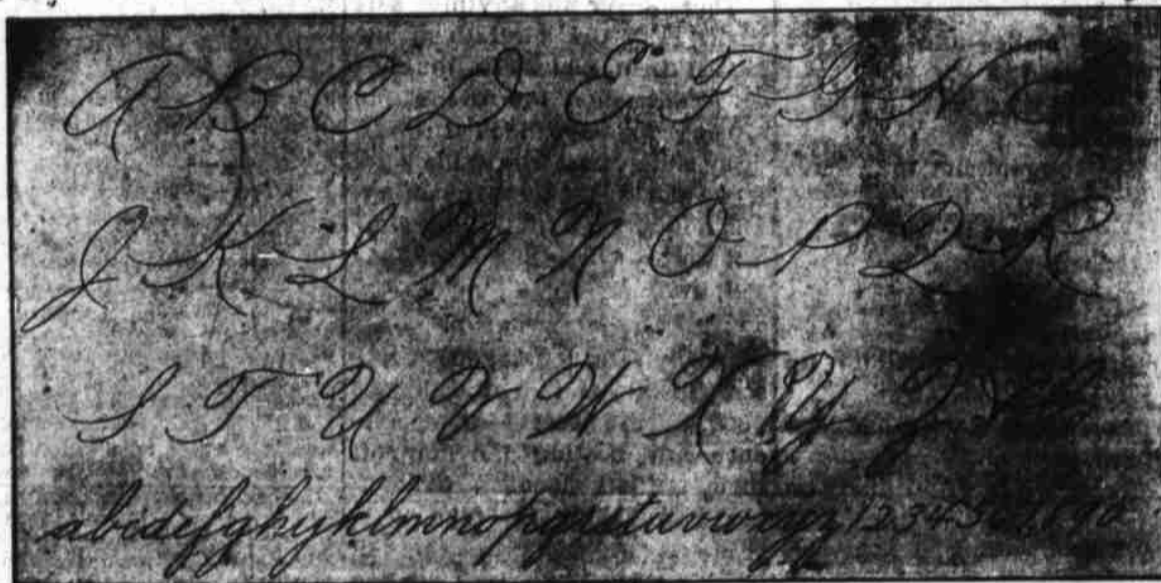 A B C D E F G H I
J K L M N O P Q R
S T U V W X Y Z
abcdefghijklmnopqrstuvwxyz 1234567890